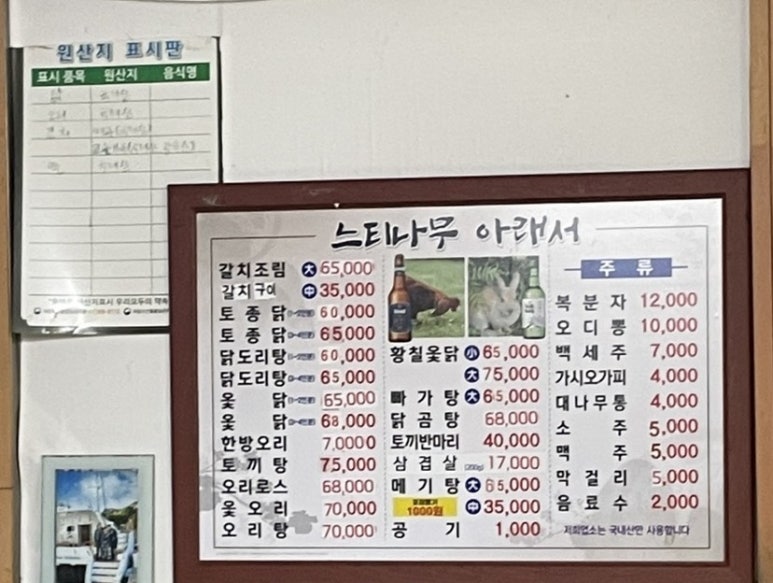 원산지 표시판
표시 품목 원산지 음식명
느티나무 아래서
갈치조림 大 65,000
갈치구이 中 35,000
토종닭 60,000
토종닭 65,000
닭도리탕 60,000
닭도리탕 65,000
옻닭 65,000
옻닭 68,000
한방오리 7,0000
토끼탕 75,000
오리로스 68,000
옻오리 70,000
오리탕 70,000
황칠옻닭 小 65,000
大 75,000
빠가탕 大 65,000
닭곰탕 68,000
토끼반마리 40,000
삼겹살 (200g) 17,000
메기탕 大 65,000
1000원 中 35,000
공기 1,000
주류
복분자 12,000
오디뽕 10,000
백세주 7,000
가시오가피 4,000
대나무통 4,000
소주 5,000
맥주 5,000
막걸리 5,000
음료수 2,000
저희업소는 국내산만 사용합니다